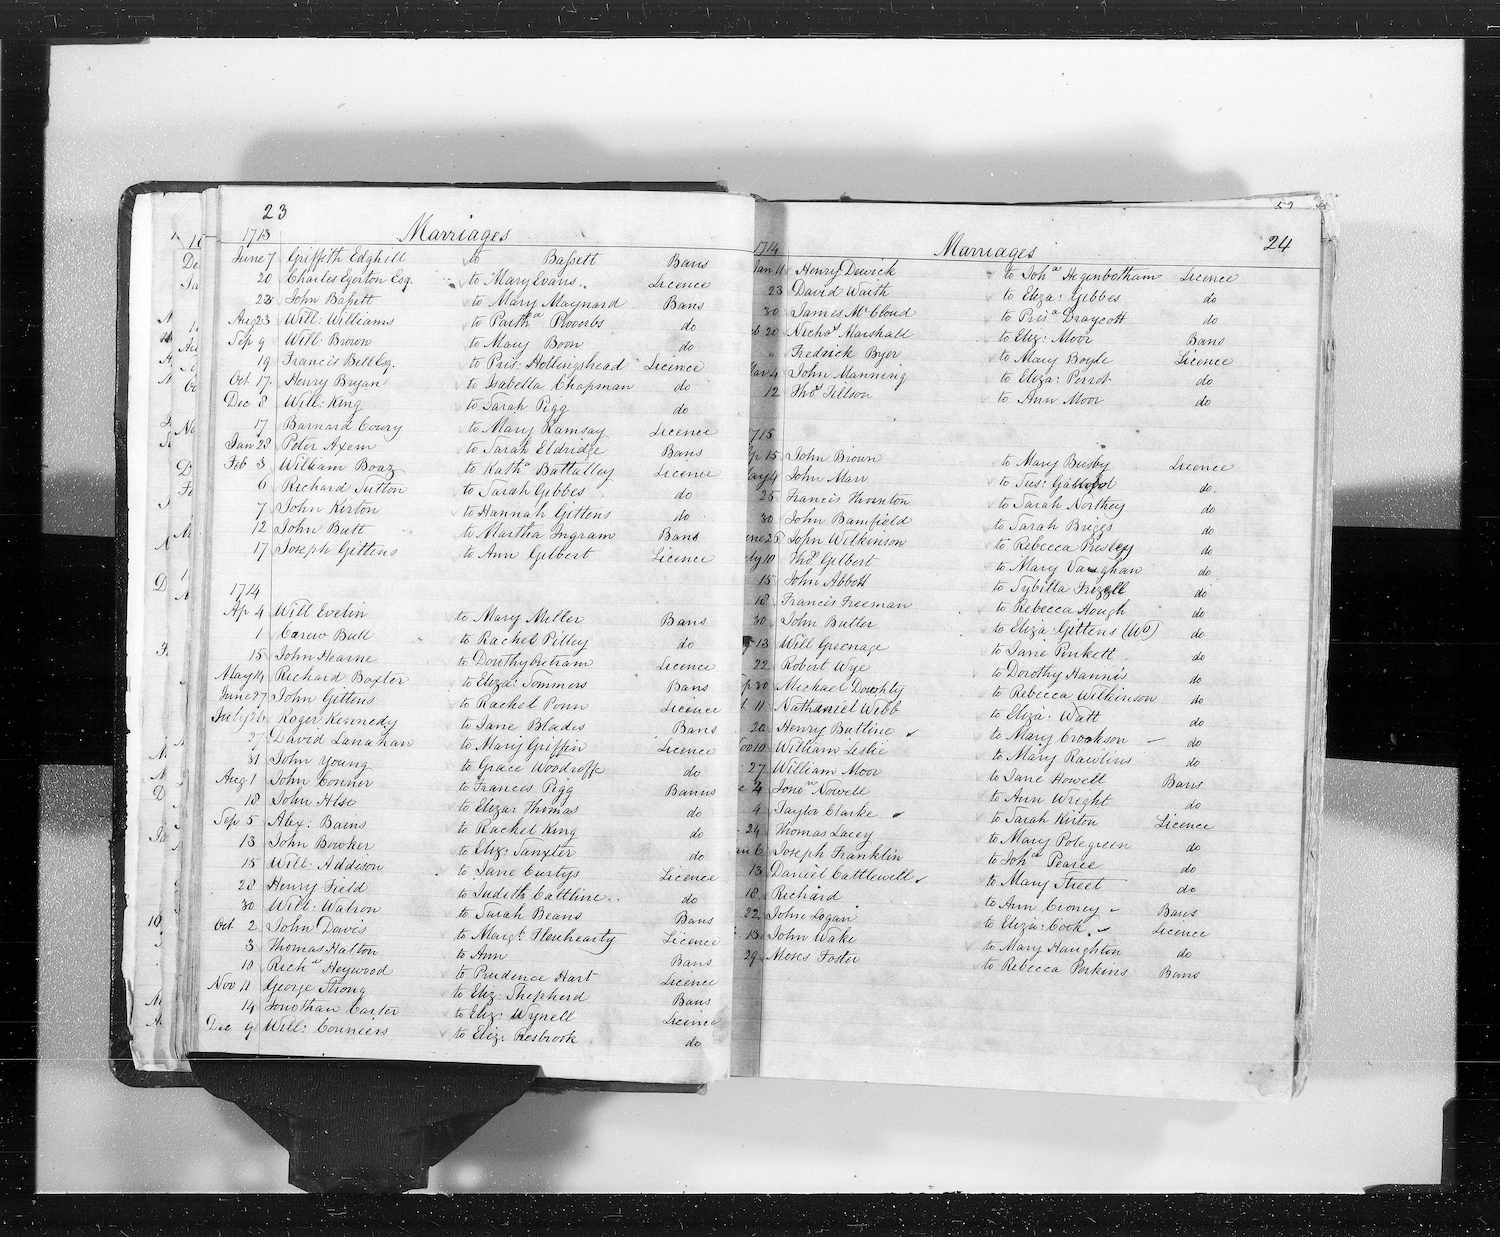 23
Marriages
1713
June 7 Griffith Edghill to Bassett Bans
20 Charles Egerton Esq. to Mary Evans Licence
23 John Bassett to Mary Maynard Bans
Aug 23 Will: Williams to Parth^a Proombs do
Sep 9 Will: Brown to Mary Boon do
19 Francis Bell Esq. to Pris: Hollingshead Licence
Oct 17 Henry Bryan to Isabella Chapman do
Dec 8 Will: King to Sarah Pigg do
17 Barnard Coury to Mary Ramsay Licence
Jan 28 Peter Axem to Sarah Eldridge Bans
Feb 3 William Boaz to Kath^a Battalley Licence
6 Richard Sutton to Sarah Gibbes do
7 John Kirton to Hannah Gittens do
12 John Butt to Martha Ingram Bans
17 Joseph Gittens to Ann Gilbert Licence
1714
Ap 4 Will Evelin to Mary Miller Bans
1 Carew Bull to Rachel Pilley do
15 John Hearne to Dorothy Licence
May 14 Richard Baxter to Eliza: Sommers Bans
June 27 John Gittens to Rachel Ponn Licence
July Roger Kennedy to Jane Blades Bans
27 David Lanahan to Mary Griffin Licence
31 John Young to Grace Woodroffe do
Aug 1 John Conner to Frances Pigg Banns
18 John Alse to Eliza: Thomas do
Sep 5 Alex: Bains to Rachel King do
13 John Bowker to Eliz: Sanxter do
15 Will: Addison to Jane Curtys Licence
28 Henry Field to Judith Calthire do
30 Will: Watson to Sarah Beans Bans
Oct 2 John Daves to Marg^t Flewhearty Licence
3 Thomas Hatton to Ann Bans
10 Rich^d Heywood to Prudence Hart Licence
Nov 11 George Strong to Eliz: Shepherd Bans
14 Jonothan Carter to Eliz: Wynell Licence
Dec 9 Will: Counsers to Eliz: Resbrook do
24
Marriages
1714
Jan 11 Henry Dewick to Joh^a Hegenbotham Licence
23 David Waith to Eliza: Gibbes do
30 James McCloud to Pris^a Draycott do
20 Nicho^s Marshall to Eliz: Moor Bans
" Fredrick Byer to Mary Boyle Licence
Mar 4 John Manning to Eliza: Perrot do
12 Tho^s Tillson to Ann Moor do
1715
15 John Brown to Mary Busby Licence
May 4 John Marr to Sus: do
25 Francis Thornton to Sarah Northey do
30 John Bamfield to Sarah Briggs do
June 25 John Wilkinson to Rebecca Presley do
July 10 Tho^s Gilbert to Mary Vaughan do
15 John Abbott to Sybilla Frizell do
18 Francis Freeman to Rebecca Hough do
30 John Butler to Eliza Gittens (Wo) do
13 Will Greenage to Jane Pinkett do
22 Robert Wye to Dorothy Hannis do
30 Michael Doughty to Rebecca Wilkinson do
11 Nathaniel Webb to Eliza: Watt do
20 Henry Butline to Mary Crookson do
Nov 10 William Leslie to Mary Rawlins do
27 William Moor to Jane Howell Bans
4 Jono^n Nowell to Ann Wright do
9 Taylor Clarke to Sarah Kirton Licence
24 Thomas Lacey to Mary Polegreen do
Jan 6 Joseph Franklin to Joh^a Pearce do
13 Daniel Cattlewell to Mary Street do
18 Richard to Ann Croney Bans
22 John Logan to Eliza: Cook Licence
13 John Wake to Mary Haughton do
29 Meres Foster to Rebecca Perkins Bans